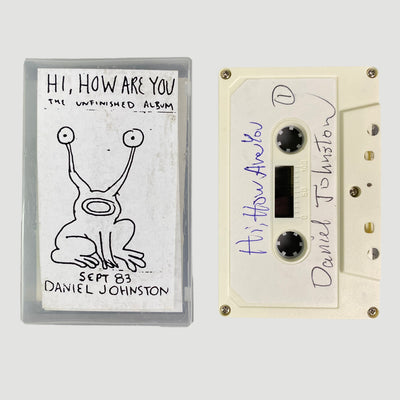 HI, HOW ARE YOU
THE UNFINISHED ALBUM
SEPT 83
DANIEL JOHNSTON
Hi, How Are You
Daniel Johnston
1